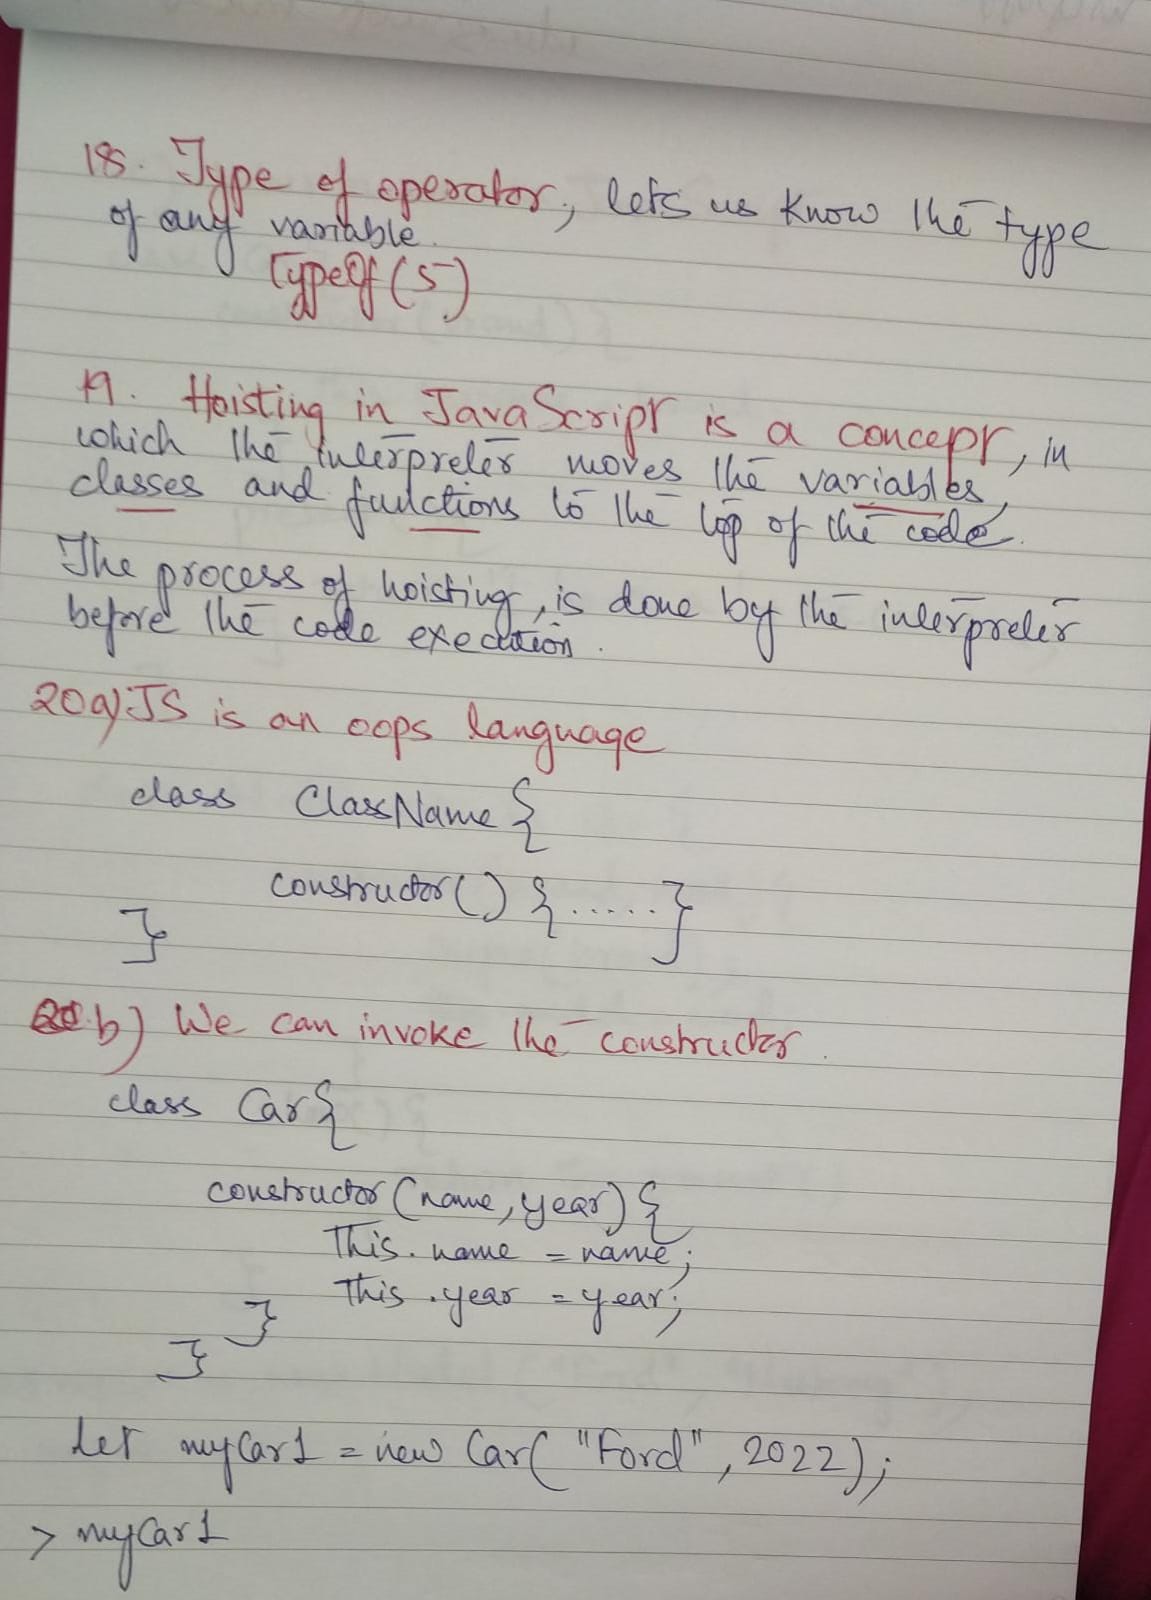 18. Type of operator, lets us know the type
of any variable.
TypeOf(5)
19. Hoisting in JavaScript is a concept, in
which the interpreter moves the variables,
classes and functions to the top of the code.
The process of hoisting, is done by the interpreter
before the code execution.
20a) JS is an oops language
class ClassName {
constructor() {.....}
}
b) We can invoke the constructor.
class Car {
constructor (name, year) {
This.name = name;
This.year = year;
}
}
Let myCar1 = new Car( "Ford", 2022);
> myCar1